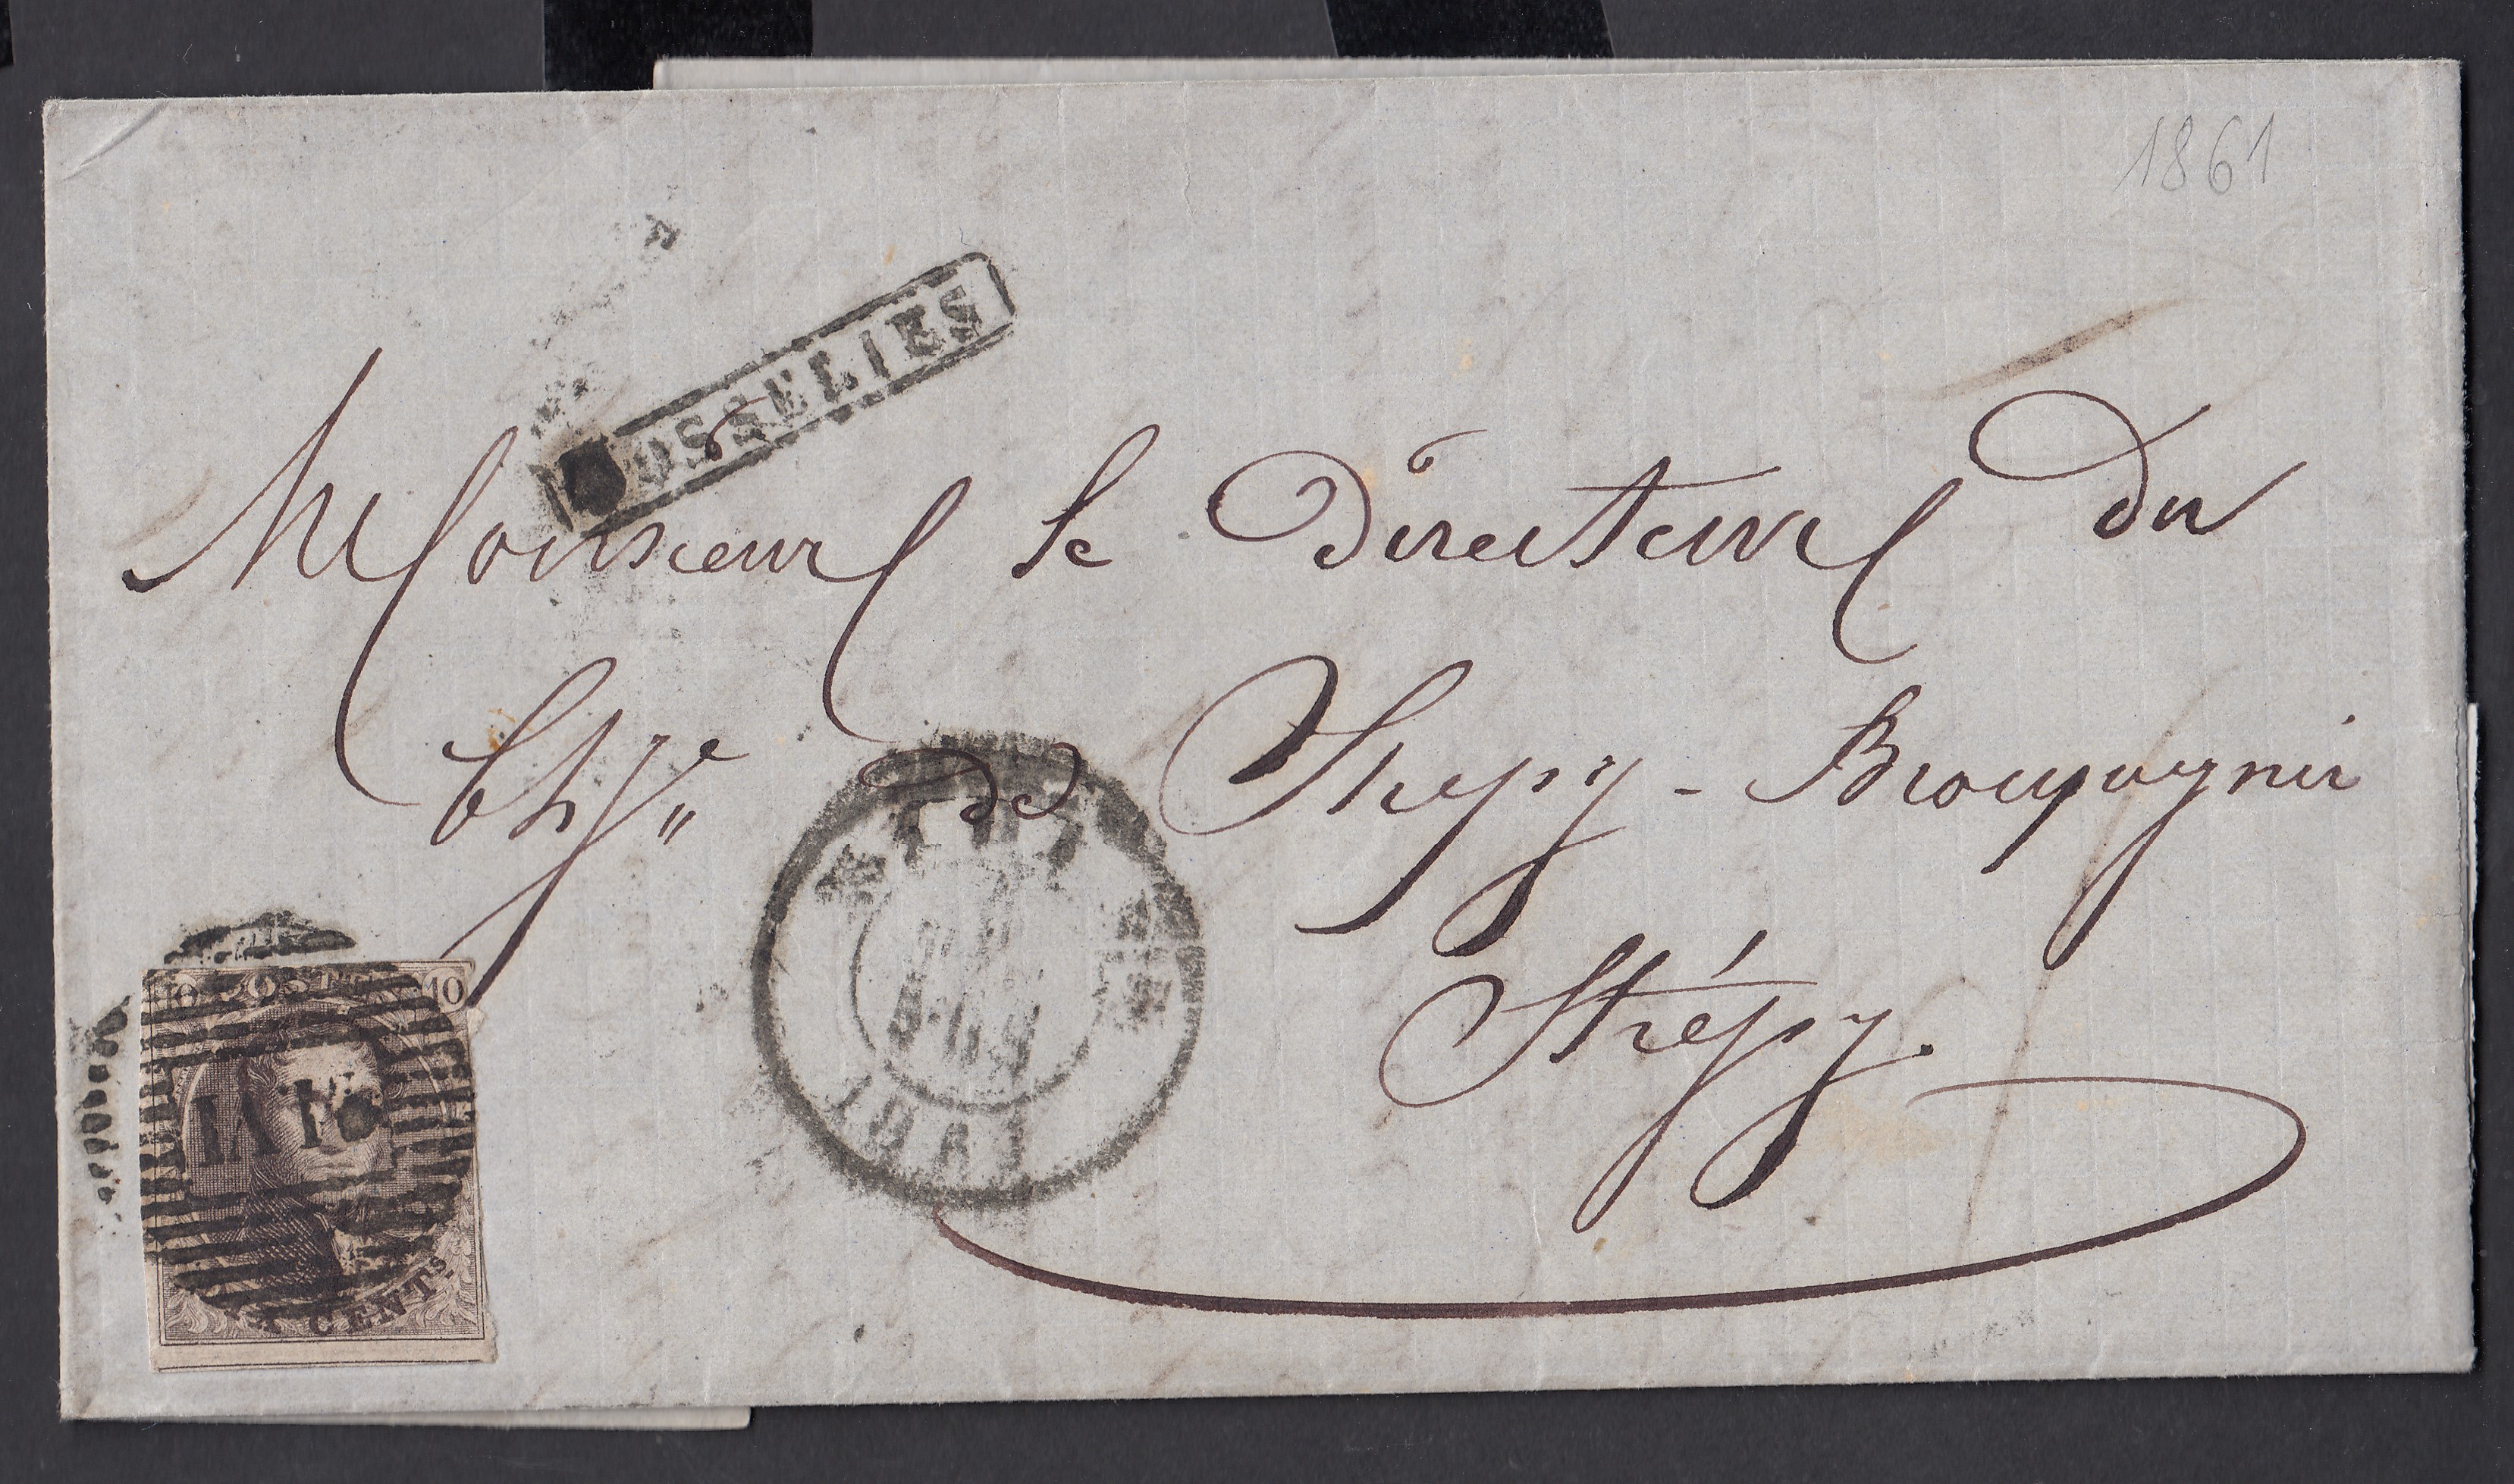 1861
GOSSELIES
Monsieur le Directeur du
Chge de Strepy-Bracquegnie
Strépy.
1861
10 POSTES 10
CENTS